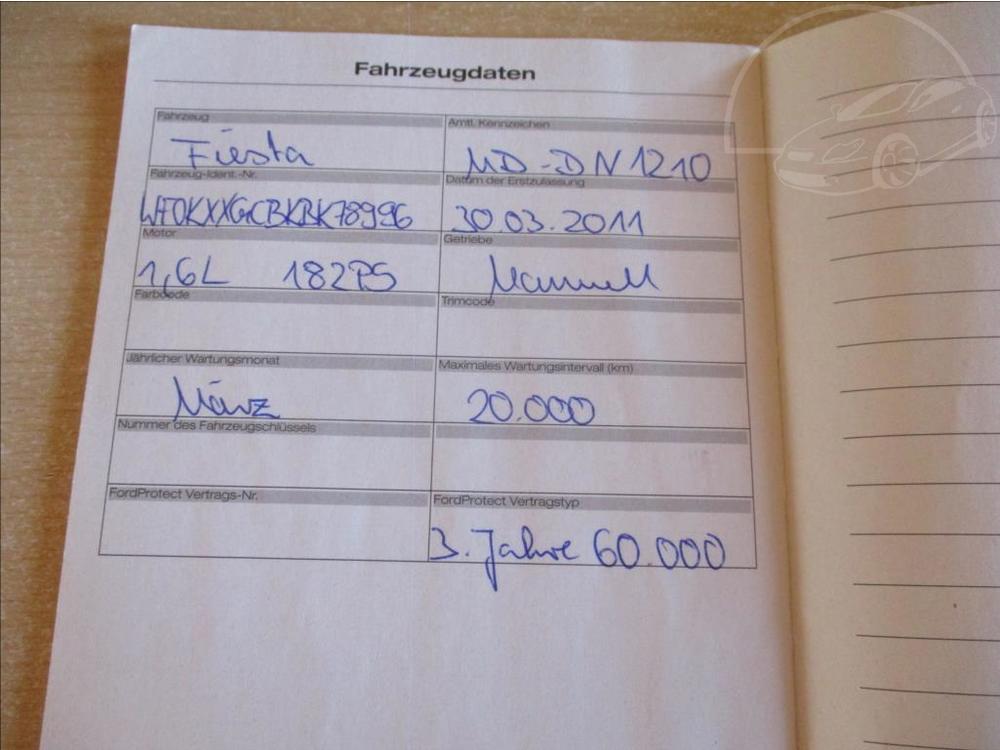 Fahrzeugdaten
Fahrzeug
Amtl. Kennzeichen
Fiesta
MD-DN1210
Fahrzeug-Ident.-Nr.
Datum der Erstzulassung
WF0KXXGCBKBK78996
30.03.2011
Motor
Getriebe
1,6L 182PS
Manuell
Farbcode
Trimcode
Jährlicher Wartungsmonat
Maximales Wartungsintervall (km)
März
20.000
Nummer des Fahrzeugschlüssels
FordProtect Vertrags-Nr.
FordProtect Vertragstyp
3. Jahre 60.000